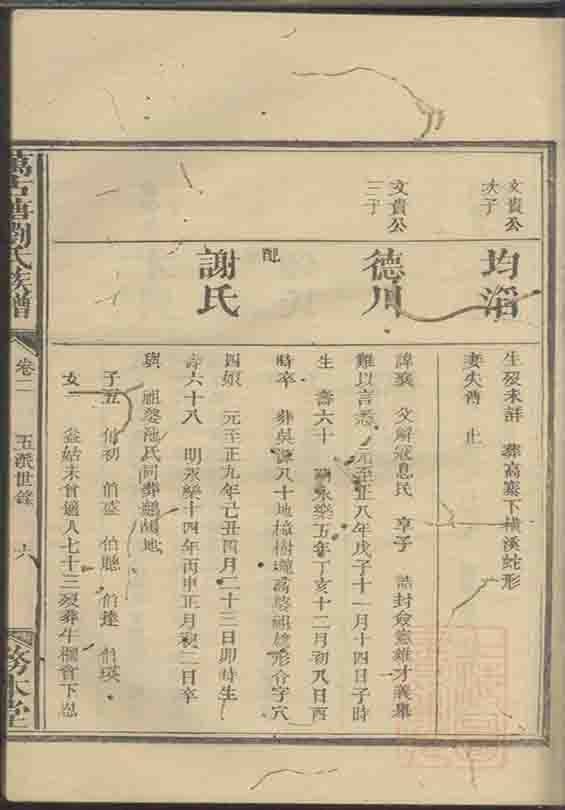 文貴公
次子
均滔
生歿未詳 葬高寨下橫溪蛇形
妻失傳 止
文貴公
三子
德川
諱 父解冠息民 享子 誥封僉憲雄才義舉
難以言悉 元至正八年戊子十一月十四日子時
生 壽六十 永樂五年丁亥十二月初八日酉
時卒 葬吳 八十地樟樹 形合字穴
配
謝氏
四娘 元至正九年己丑四月二十三日卯時生
壽六十八 明永樂十四年丙申正月 二日卒
與 祖婆池氏同葬 地
子五 伯初 伯盛 伯聰 伯達 伯瑛
女一 益姑未曾適人七十三歿葬牛欄 下
萬石塘劉氏族譜
卷二
五派世錄
六
務本堂